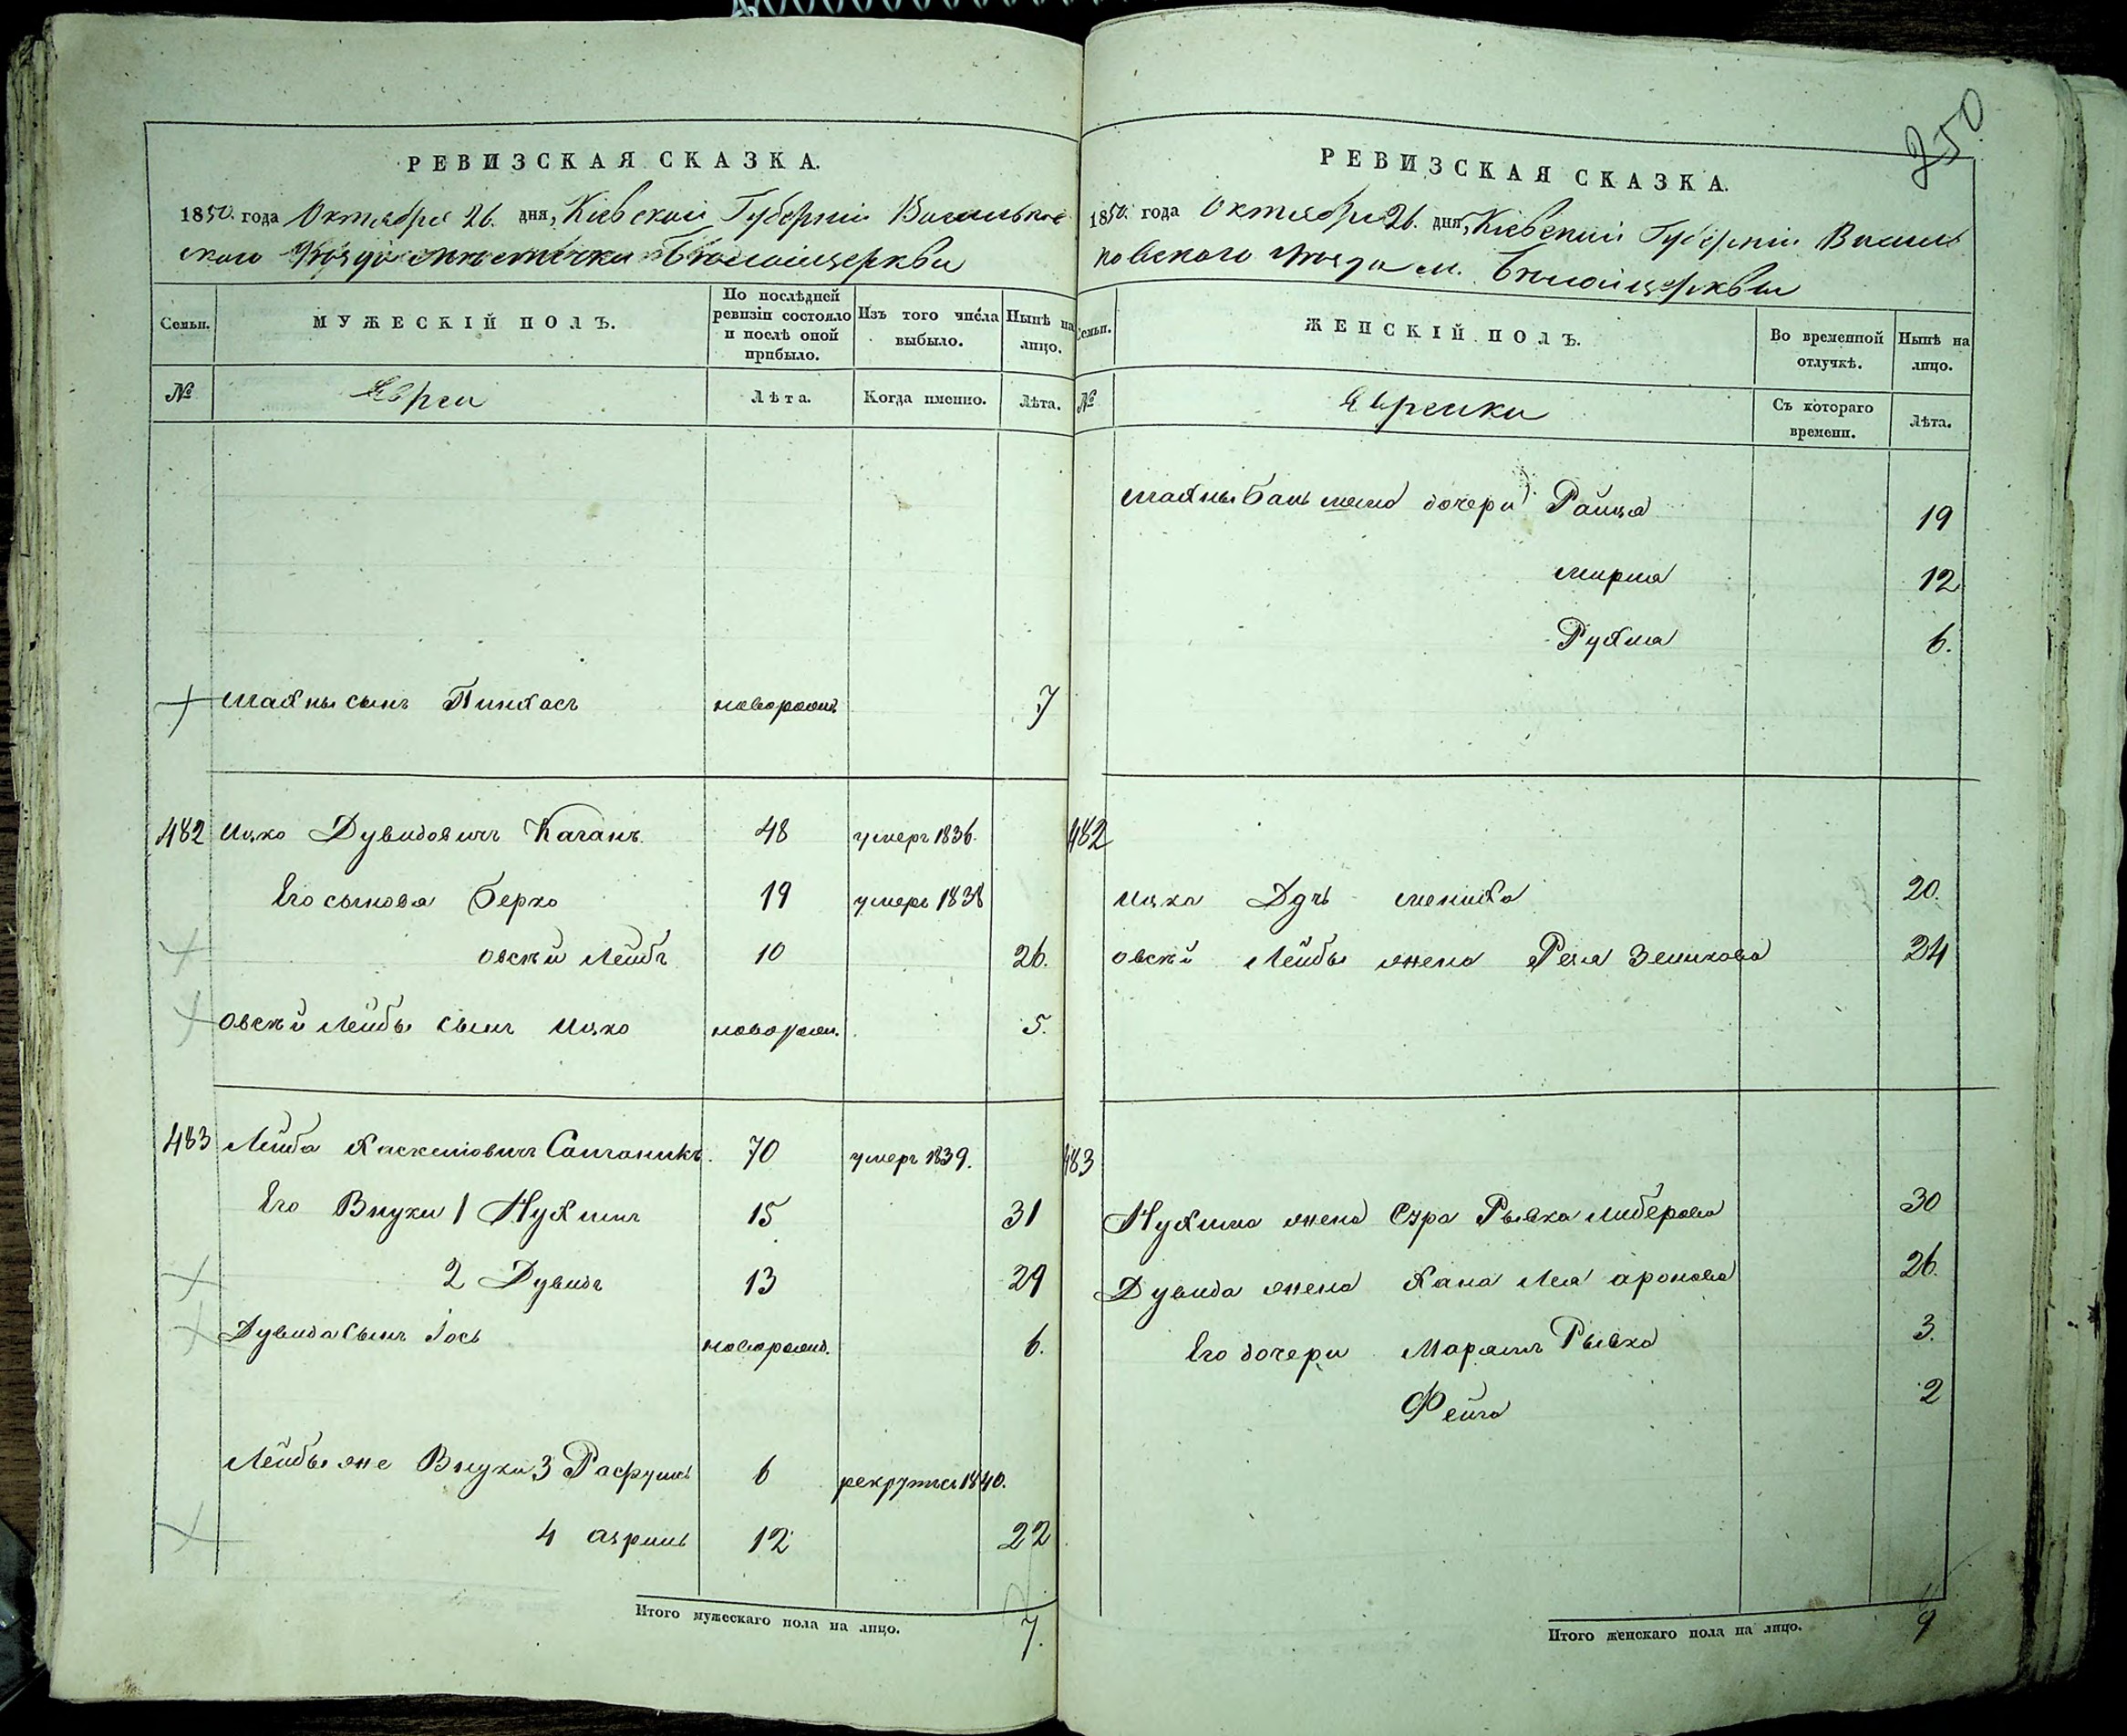 250
РЕВИЗСКАЯ СКАЗКА.
1850. года Октября 26. дня, Кіевской Губерніи Васильков
скаго Уѣзда местечка Бѣлойцеркви
Семьи.
МУЖЕСКІЙ ПОЛЪ.
По послѣдней ревизіи состояло и послѣ оной прибыло.
Изъ того числа выбыло.
Нынѣ на лицо.
№
Евреи
Лѣта.
Когда именно.
Лѣта.
сынъ Пинхасъ новорожд 7
482 Ицко Дувидовичъ Каганъ 48 умеръ 1836.
Его сыновя Берко 19 умеръ 1838
овсѣй Лейбъ 10 26.
овсѣй Лейбы сынъ Ицко новорожд. 5.
483 Лейба Хаскеліовичъ 70 умеръ 1839.
Его Внуки 1 Нухимъ 15 31
2 Дувидъ 13 29
Дувида Сынъ Іось новорожд. 6.
Лейбы же Внуки 3 6 рекрутъ 1840.
4 12 22
Итого мужескаго пола на лицо. 7.
РЕВИЗСКАЯ СКАЗКА.
1850. года Октября 26. дня, Кіевской Губерніи Василь
ковского Уѣзда м. Бѣлойцеркви
Семьи.
ЖЕНСКІЙ ПОЛЪ.
Во временной отлучкѣ.
Нынѣ на лицо.
№
Еврейки
Съ котораго времени.
Лѣта.
дочери Райца 19
мирля 12
Рухля 6.
482
Ицка Дчь 20.
овсѣй Лейбы жена Рейзя 24
483
Нухима жена Сура Рывка либерова 30
Дувида жена Хана Лея аронова 26.
Его дочери Маріямъ Рывка 3.
Фейга 2
Итого женскаго пола на лицо. 9